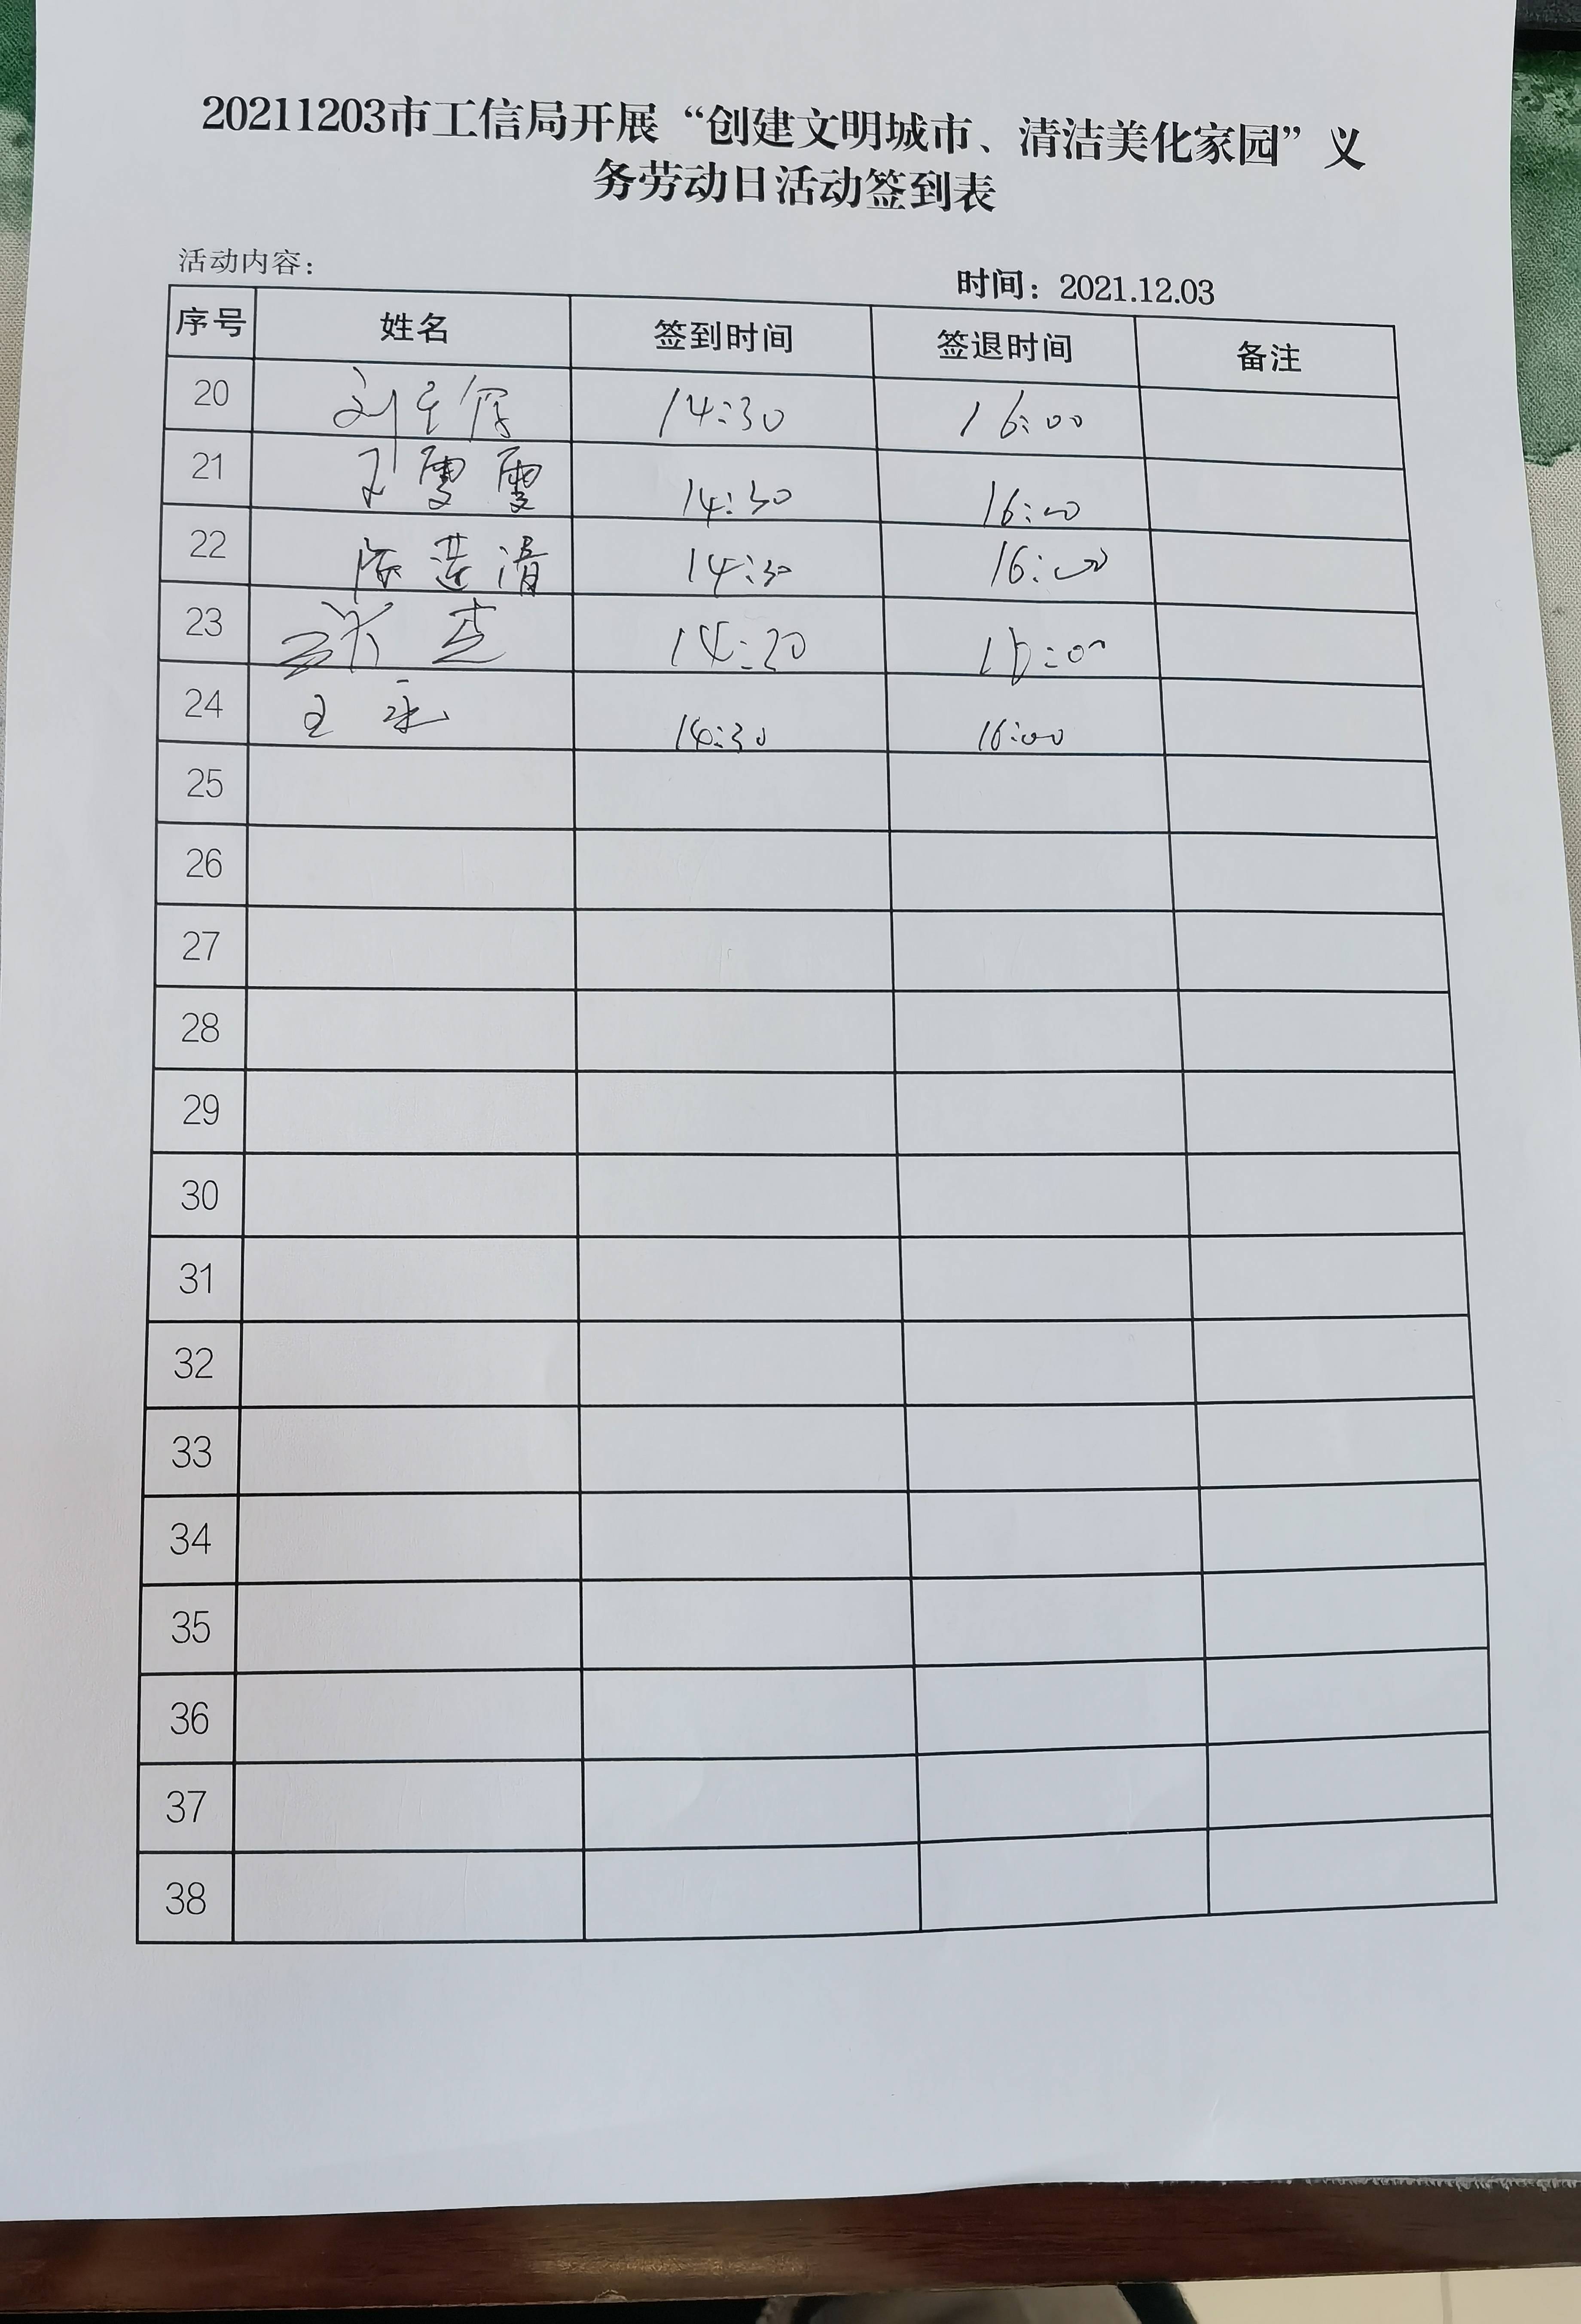 20211203市工信局开展“创建文明城市、清洁美化家园”义
务劳动日活动签到表
活动内容：
时间：2021.12.03
序号 姓名 签到时间 签退时间 备注
20 14:30 16:00
21 王雯雯 14:30 16:00
22 陈莲清 14:30 16:00
23 14:30 16:00
24 王永 14:30 16:00
25
26
27
28
29
30
31
32
33
34
35
36
37
38